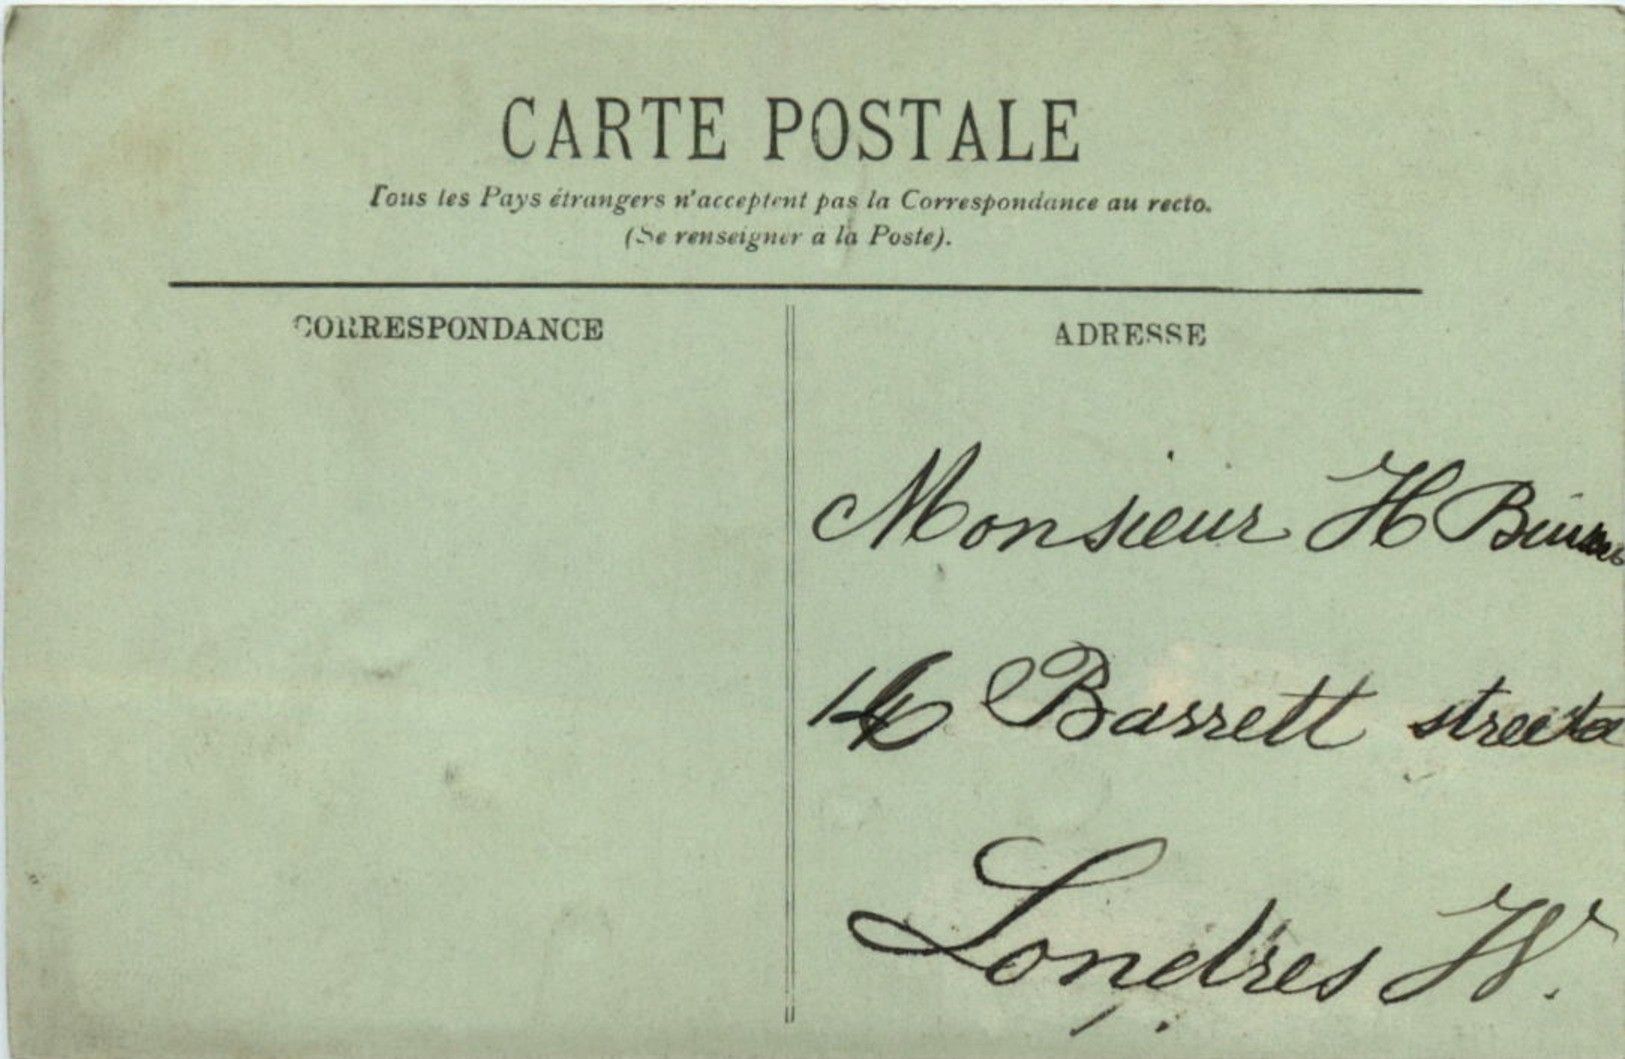 CARTE POSTALE
Tous les Pays étrangers n'acceptent pas la Correspondance au recto.
(Se renseigner a la Poste).
CORRESPONDANCE
ADRESSE
Monsieur H
Barrett
Londres W.